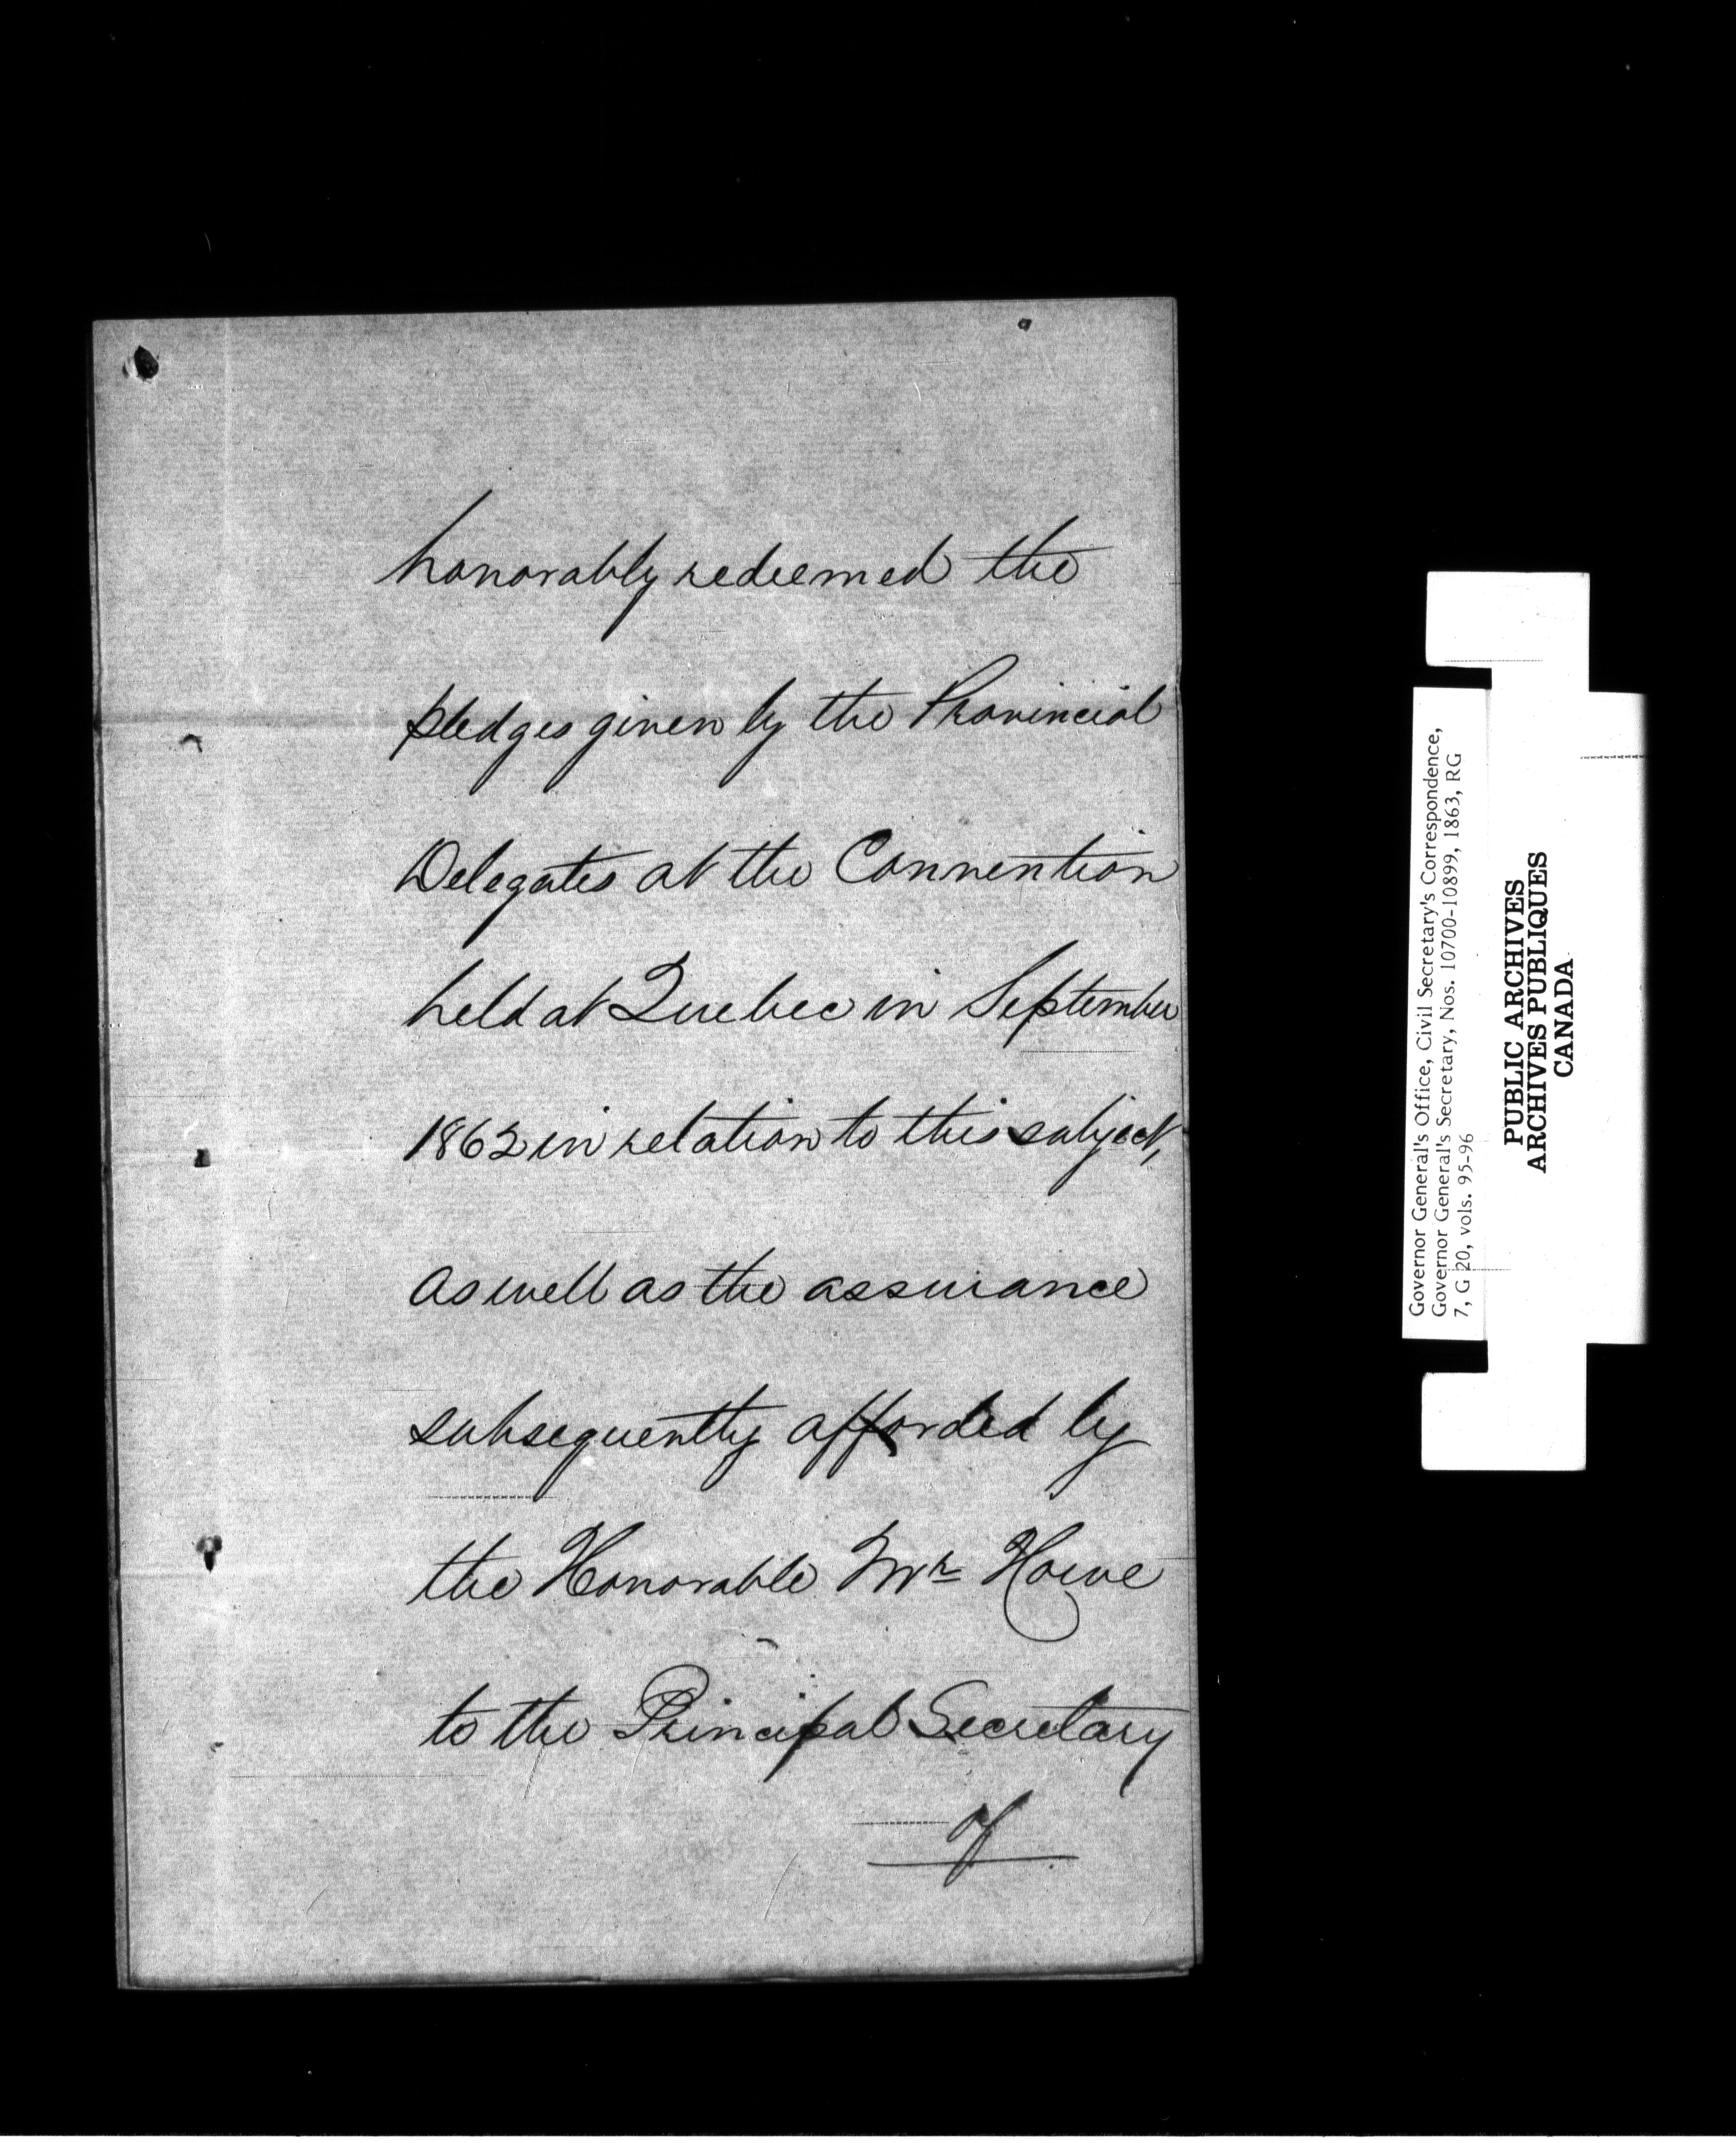 honorably redeemed the
pledges given by the Provincial
Delegates at the Convention
held at Quebec in September
1862 in relation to this subject,
as well as the assurance
subsequently afforded by
the Honorable Mr Howe
to the Principal Secretary
of
Governor General's Office, Civil Secretary's Correspondence,
Governor General's Secretary, Nos. 10700-10899, 1863, RG
7, G 20, vols. 95-96
PUBLIC ARCHIVES
ARCHIVES PUBLIQUES
CANADA